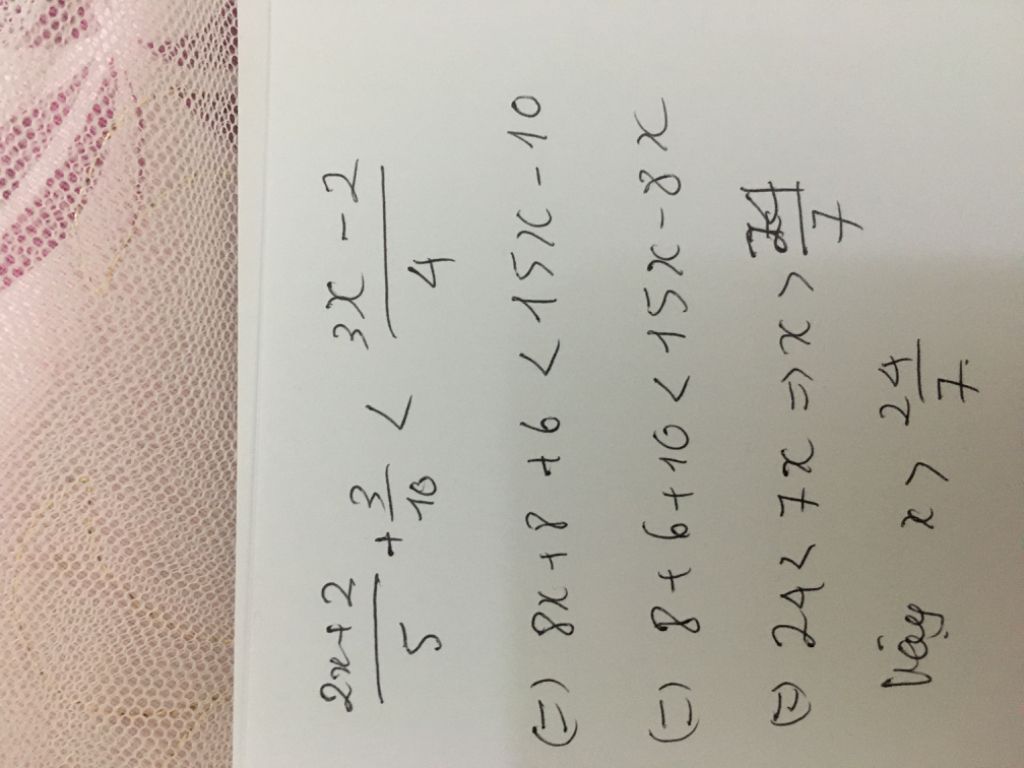 2x+2/5 + 3/10 < 3x-2/4
(=) 8x+8+6 < 15x-10
(=) 8+6+10 < 15x-8x
(=) 24 < 7x => x > 24/7
Vậy x > 24/7.